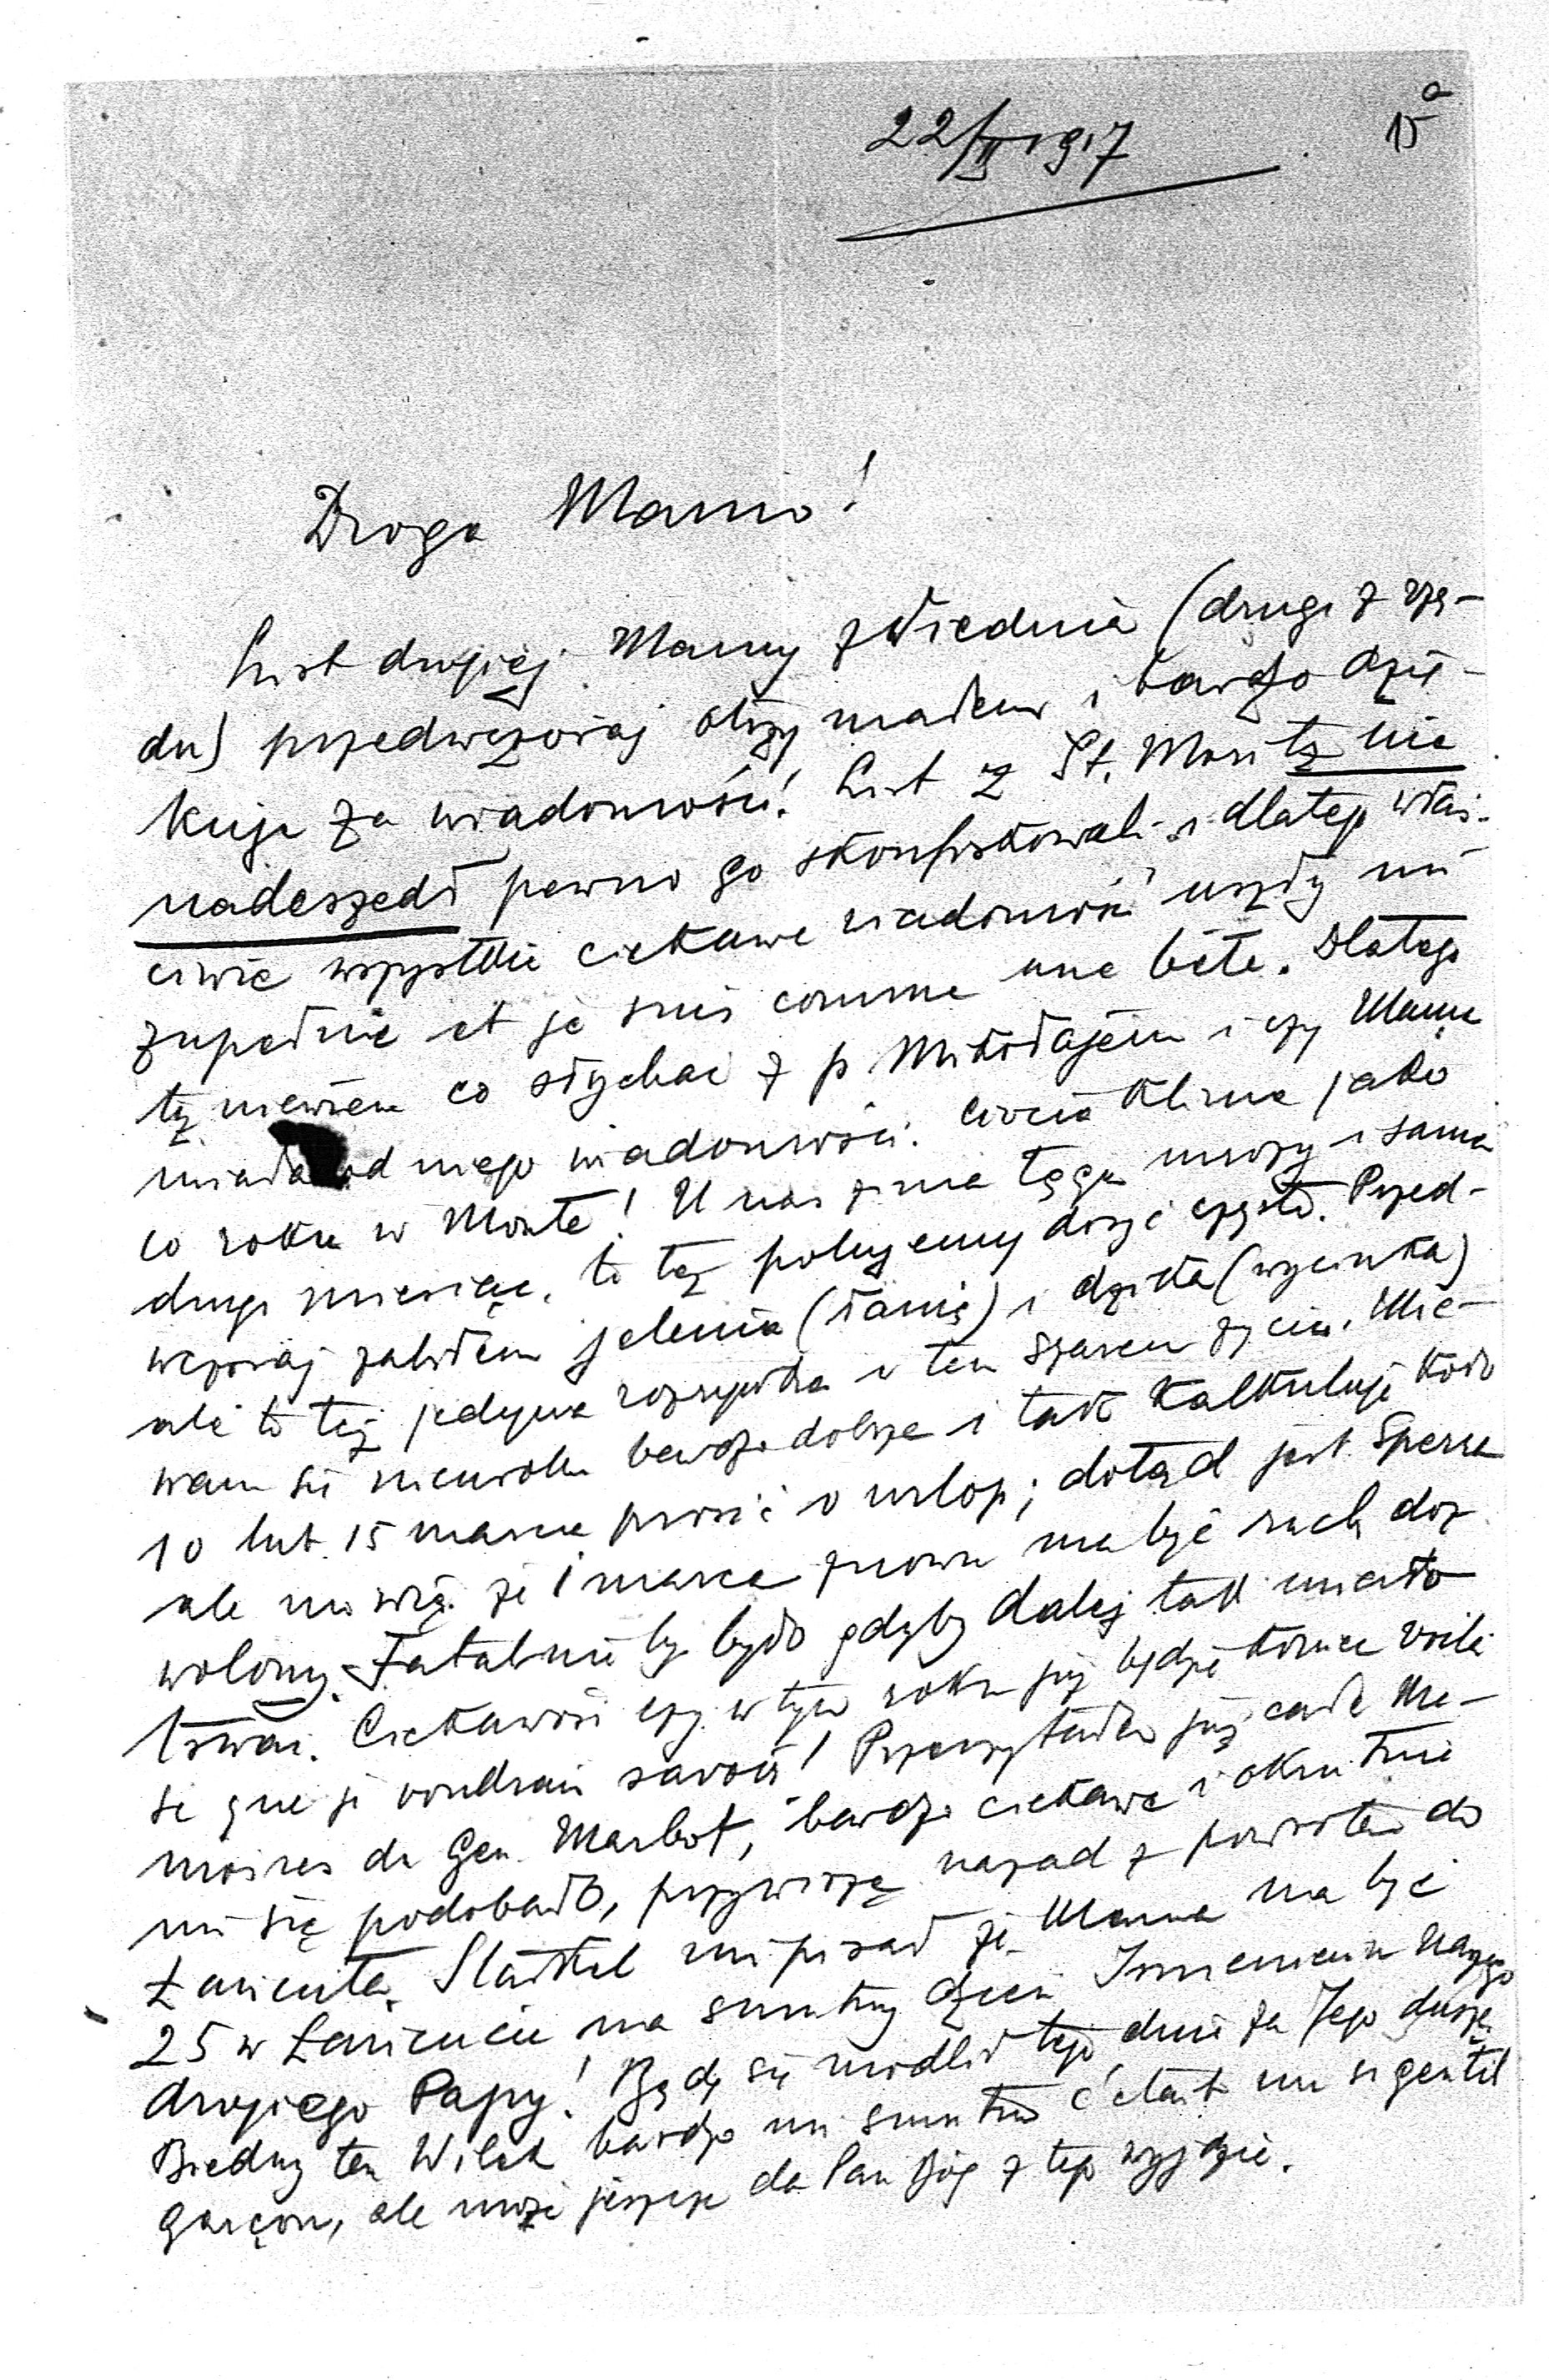 22/II 1917
15a
Droga Mamo!
List drogiej Mamy z Wiednia (drugi z rzę-
du) przedwczoraj otrzymałem i bardzo dzię-
kuję za wiadomości! List z St. Moritz nie
nadeszedł pewno go skonfiskowali i dlatego właś-
ciwie wszystkie ciekawe wiadomości uszły mi
zupełnie et je suis comme une bête. Dlatego
tż niewiem co słychać z p Mikołajem i czy Mama
miała od niego wiadomości. Ciocia Klima jako
co roku w Monte! U nas zima tęga mrozy i sanna
drugi miesiąc, to też polujemy dosyć często. Przed-
wczoraj zabiłem jelenia (łanię) i dzika (wycinka)
ale to też jedyna rozrywka w tem szarem życiu. Mie-
wam się nieuroku bardzo dobrze i tak kalkuluję koło
10 lub 15 marca prosić o urlop; dotąd jest Sperra
ale mówią że 1 marca znowu ma być ruch doz-
wolony. Fatalnie by było gdyby dalej tak miało
trwać. Ciekawość czy w tym roku już będzie koniec voilà
se que je voudrais savoir! Przeczytałem już całe Me-
moires du Gen. Marbot, bardzo ciekawe i okrutnie
mi się podobało, przywiozę nazad z powrotem do
Łańcuta. Staškel mi pisał że Mama ma być
25 w Łańcucie na smutny dzień Imienienin naszego
drogiego Papy! Będę się modlił tego dnia za Jego duszę.
Biedny ten Wilek bardzo mi smutno c'était un si gentil
garçon, ale może jeszcze da Pan Bóg z tego wyjdzie.